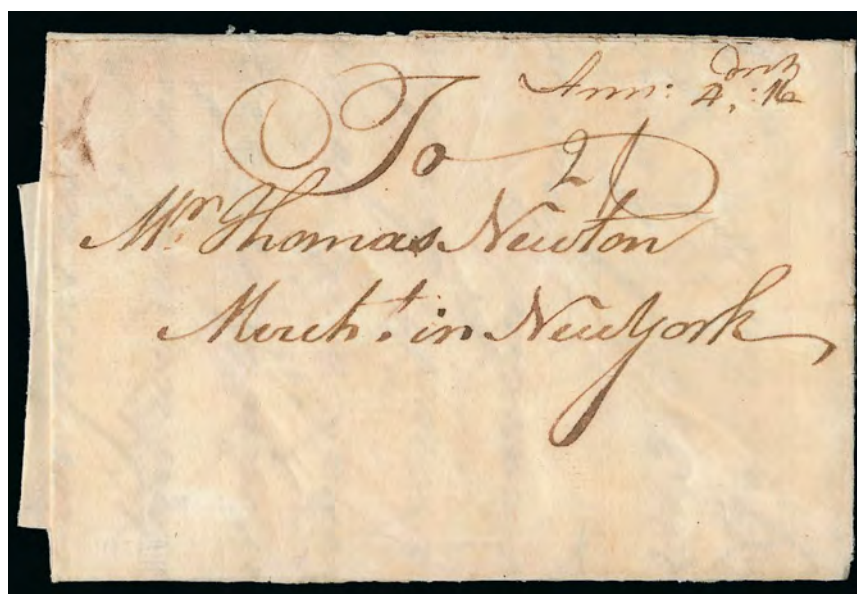 Ann: 4: 16
To 2/
Mr. Thomas Newton
Mercht. in New York